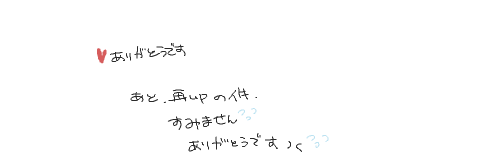 ♥ありがとうです
あと、再upの件、
すみません
ありがとうです